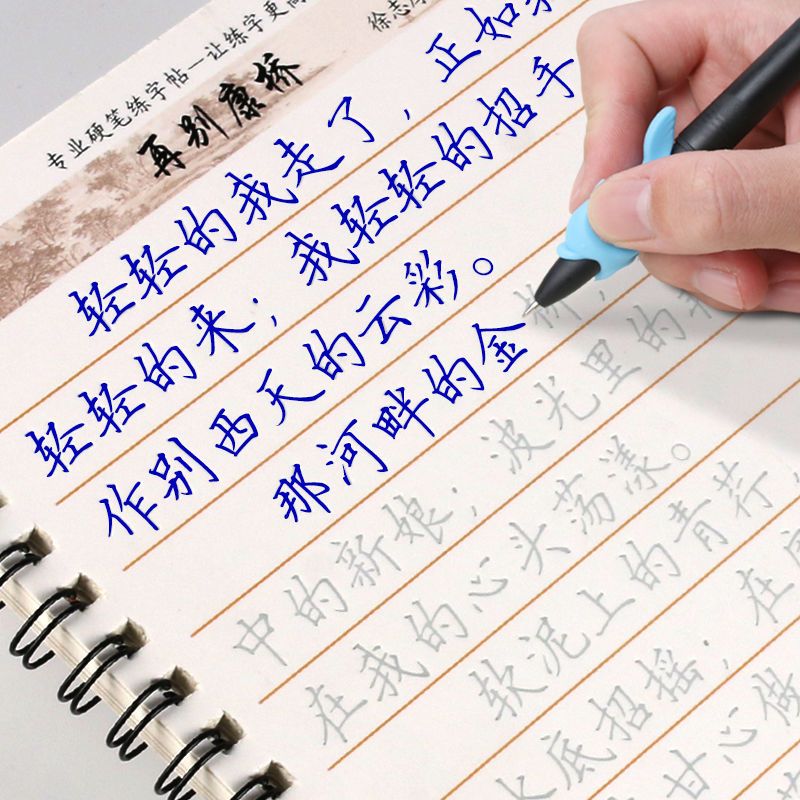 专业硬笔练字帖—让练字更
再别康桥
徐志
轻轻的我走了，正如
轻轻的来；我轻轻的招手
作别西天的云彩。
那河畔的金柳，
中的新娘；波光里的
在我的心头荡漾。
软泥上的青荇，
底招摇；在
甘心做